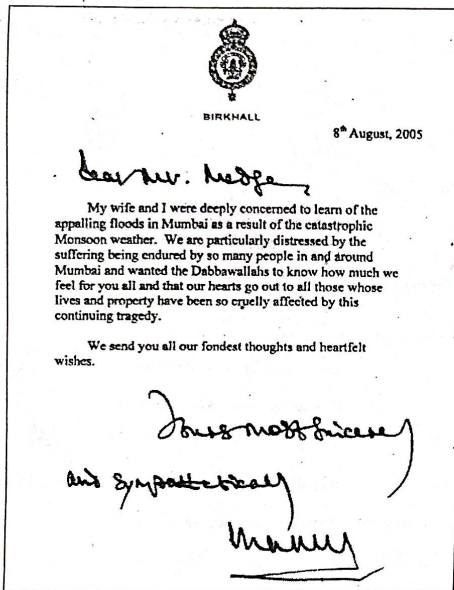 BIRKHALL
8th August, 2005
Dear Mr. Medge,
My wife and I were deeply concerned to learn of the
appalling floods in Mumbai as a result of the catastrophic
Monsoon weather. We are particularly distressed by the
suffering being endured by so many people in and around
Mumbai and wanted the Dabbawallahs to know how much we
feel for you all and that our hearts go out to all those whose
lives and property have been so cruelly affected by this
continuing tragedy.
We send you all our fondest thoughts and heartfelt
wishes.
Yours most sincerely
and sympathetically